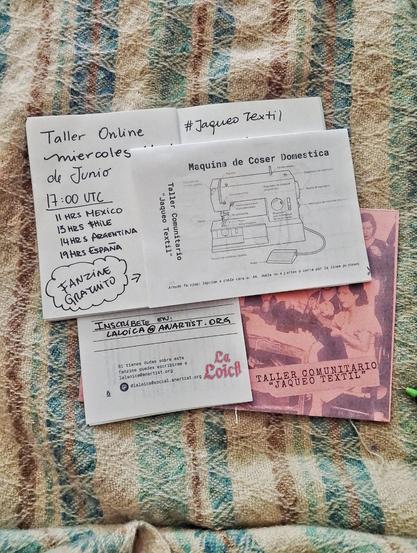 Taller Online
miercoles
de Junio
17:00 UTC
11 HRS MEXICO
13 HRS CHILE
14 HRS ARGENTINA
19 HRS ESPAÑA
FANZINE
GRATUITO
#Jaqueo Textil
Maquina de Coser Domestica
Taller Comunitario
"Jaqueo Textil"
INSCRÍBETE EN:
LALOICA@ANARTIST.ORG
Si tienes dudas sobre este
fanzine puedes escribirme a
laloica@anartist.org
@laloica@social.anartist.org
La
Loica
TALLER COMUNITARIO
"JAQUEO TEXTIL"